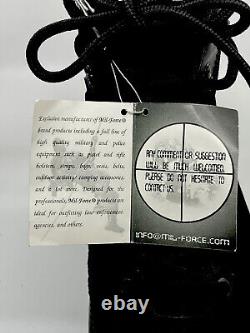 Exclusive manufacturers of Mil-Force®
brand products including a full line of
high quality military and police
equipment such as pistol and rifle
holsters, straps, bipod, vests, belts,
outdoor activity/ camping accessories,
and a lot more. Designed for the
professionals, Mil-Force® products are
ideal for outfitting law enforcement
agencies, and others.
ANY COMMENT OR SUGGESTION
WILL BE MUCH WELCOMED.
PLEASE DO NOT HESITATE TO
CONTACT US.
INFO@MIL-FORCE.COM